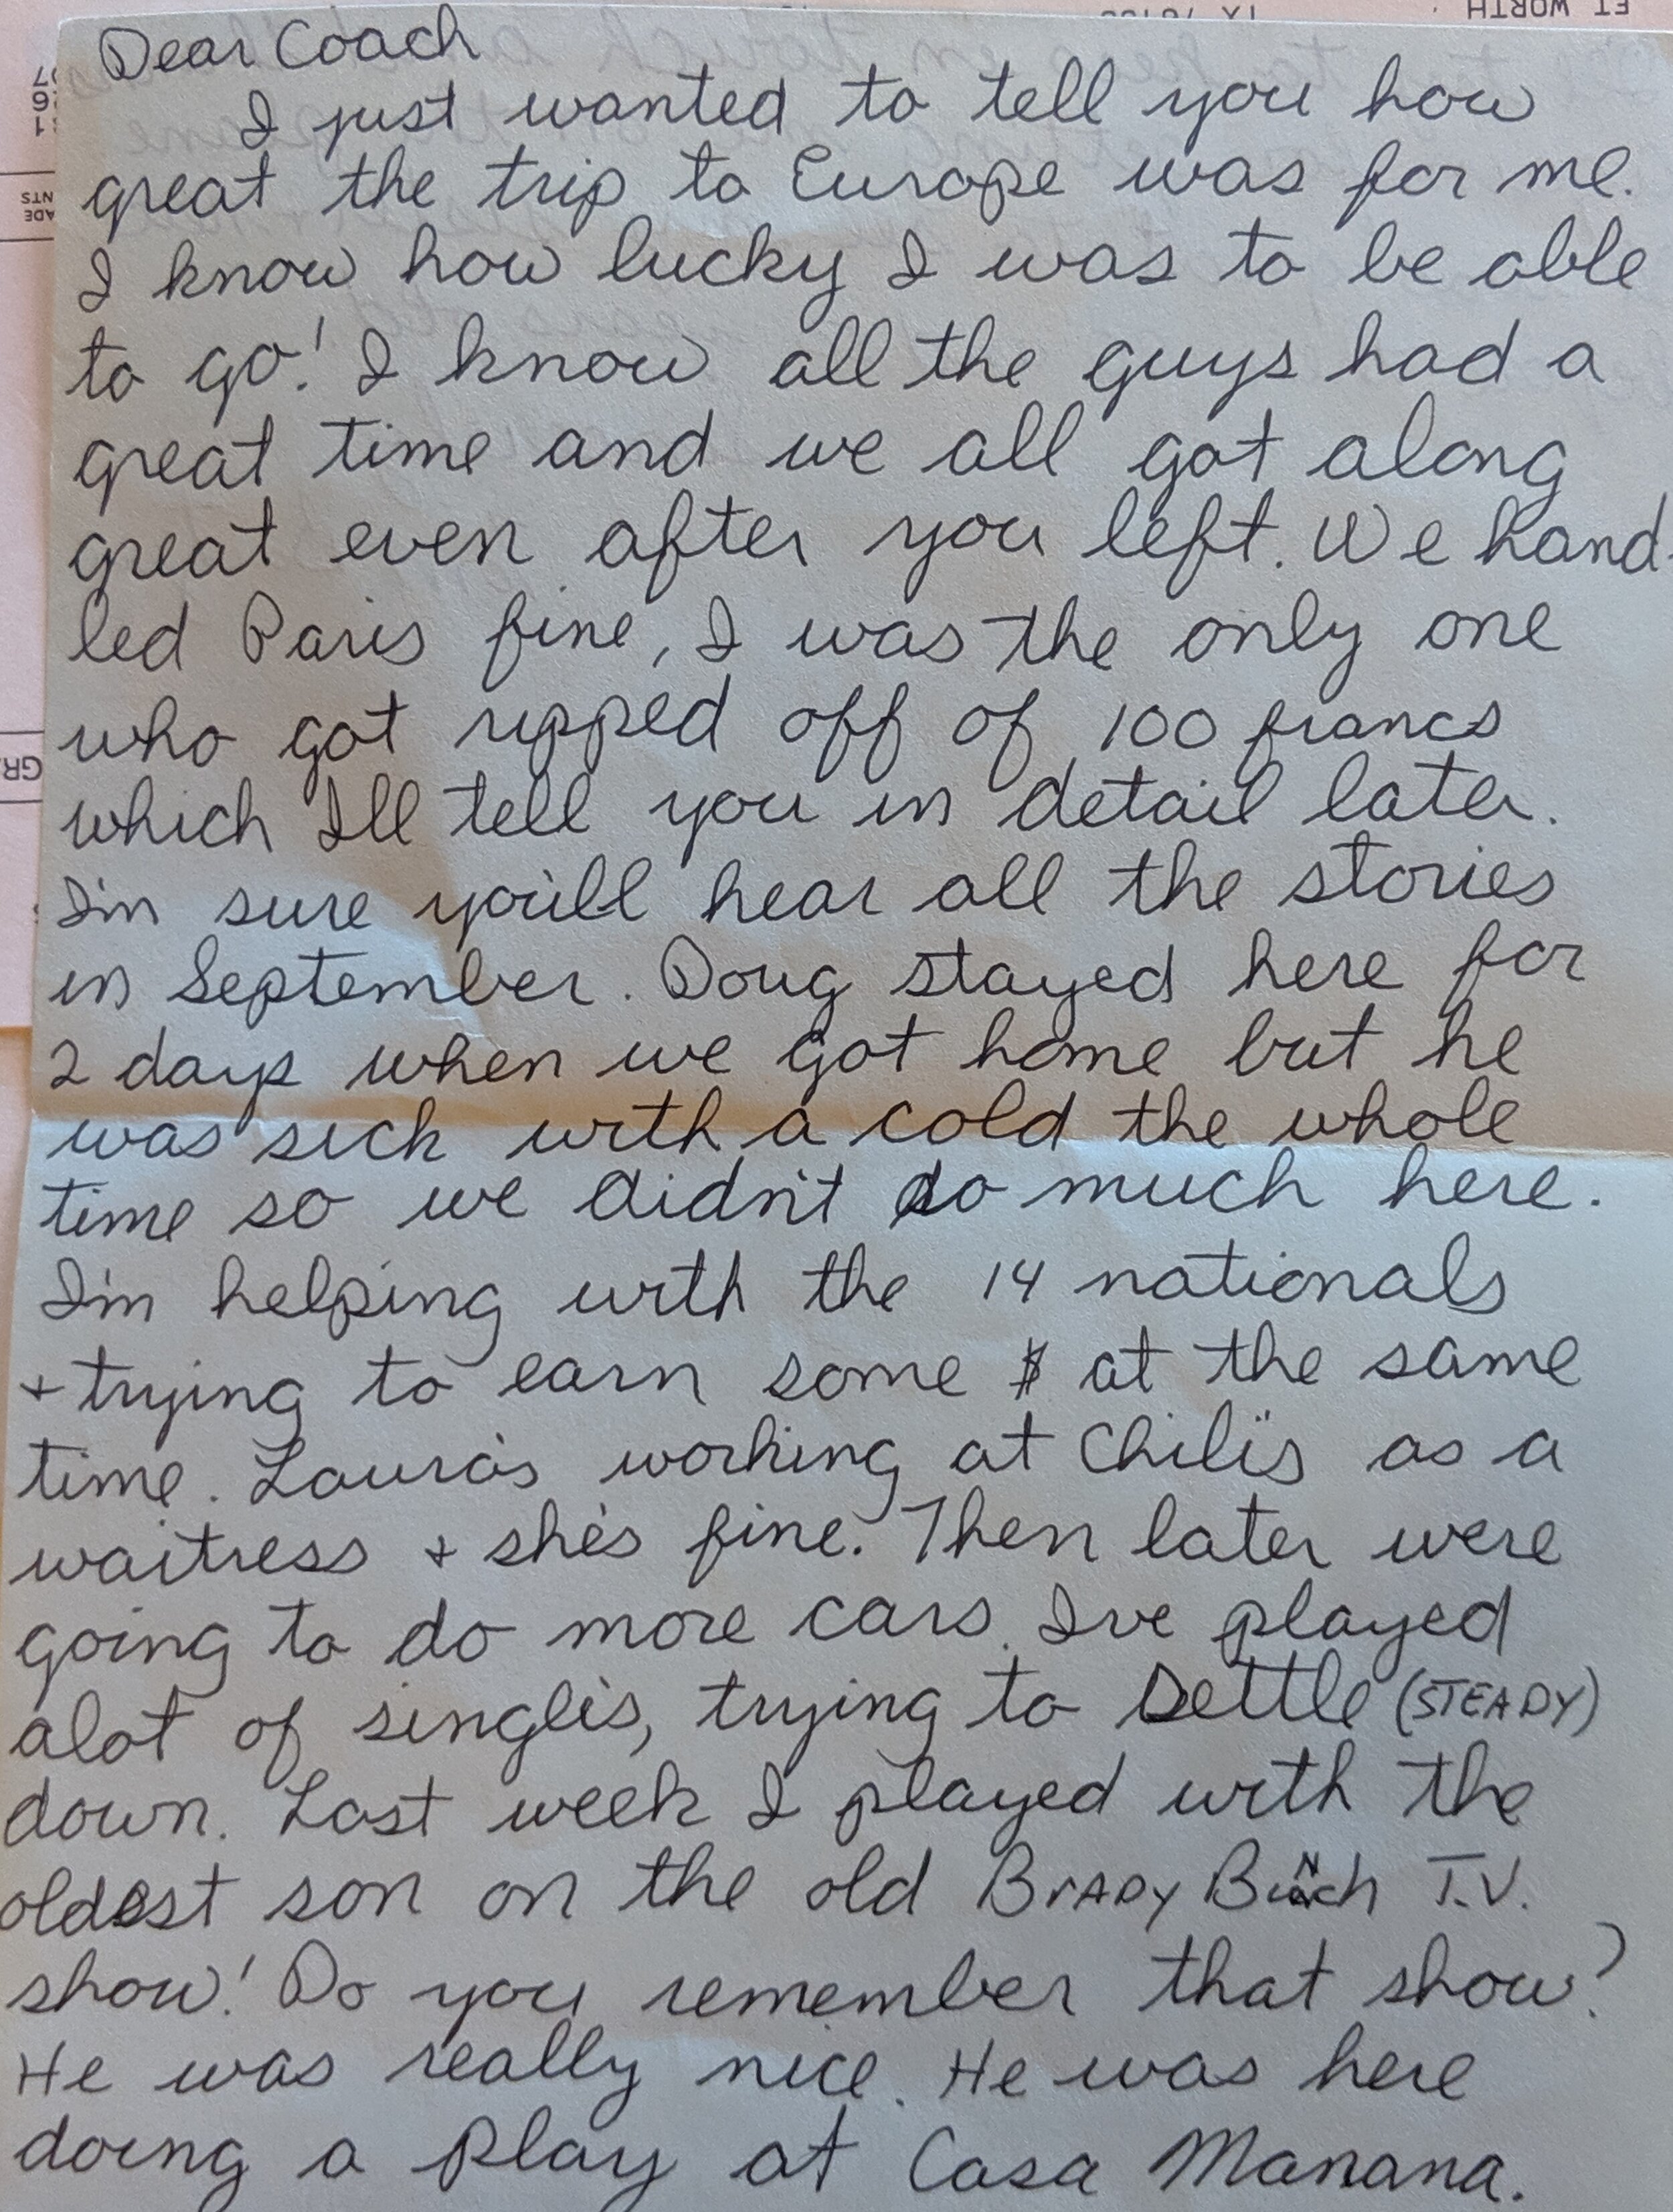 FT WORTH
Dear Coach
I just wanted to tell you how
great the trip to Europe was for me.
I know how lucky I was to be able
to go! I know all the guys had a
great time and we all got along
great even after you left. We hand-
led Paris fine, I was the only one
who got ripped off of 100 francs
which I'll tell you in detail later.
I'm sure you'll hear all the stories
in September. Doug stayed here for
2 days when we got home but he
was sick with a cold the whole
time so we didn't do much here.
I'm helping with the 14 nationals
+ trying to earn some $ at the same
time. Laura's working at Chili's as a
waitress + she's fine. Then later were
going to do more cars. I've played
alot of singles, trying to settle (STEADY)
down. Last week I played with the
oldest son on the old BrADY BuNch T.V.
show! Do you remember that show?
He was really nice. He was here
doing a play at Casa Manana.